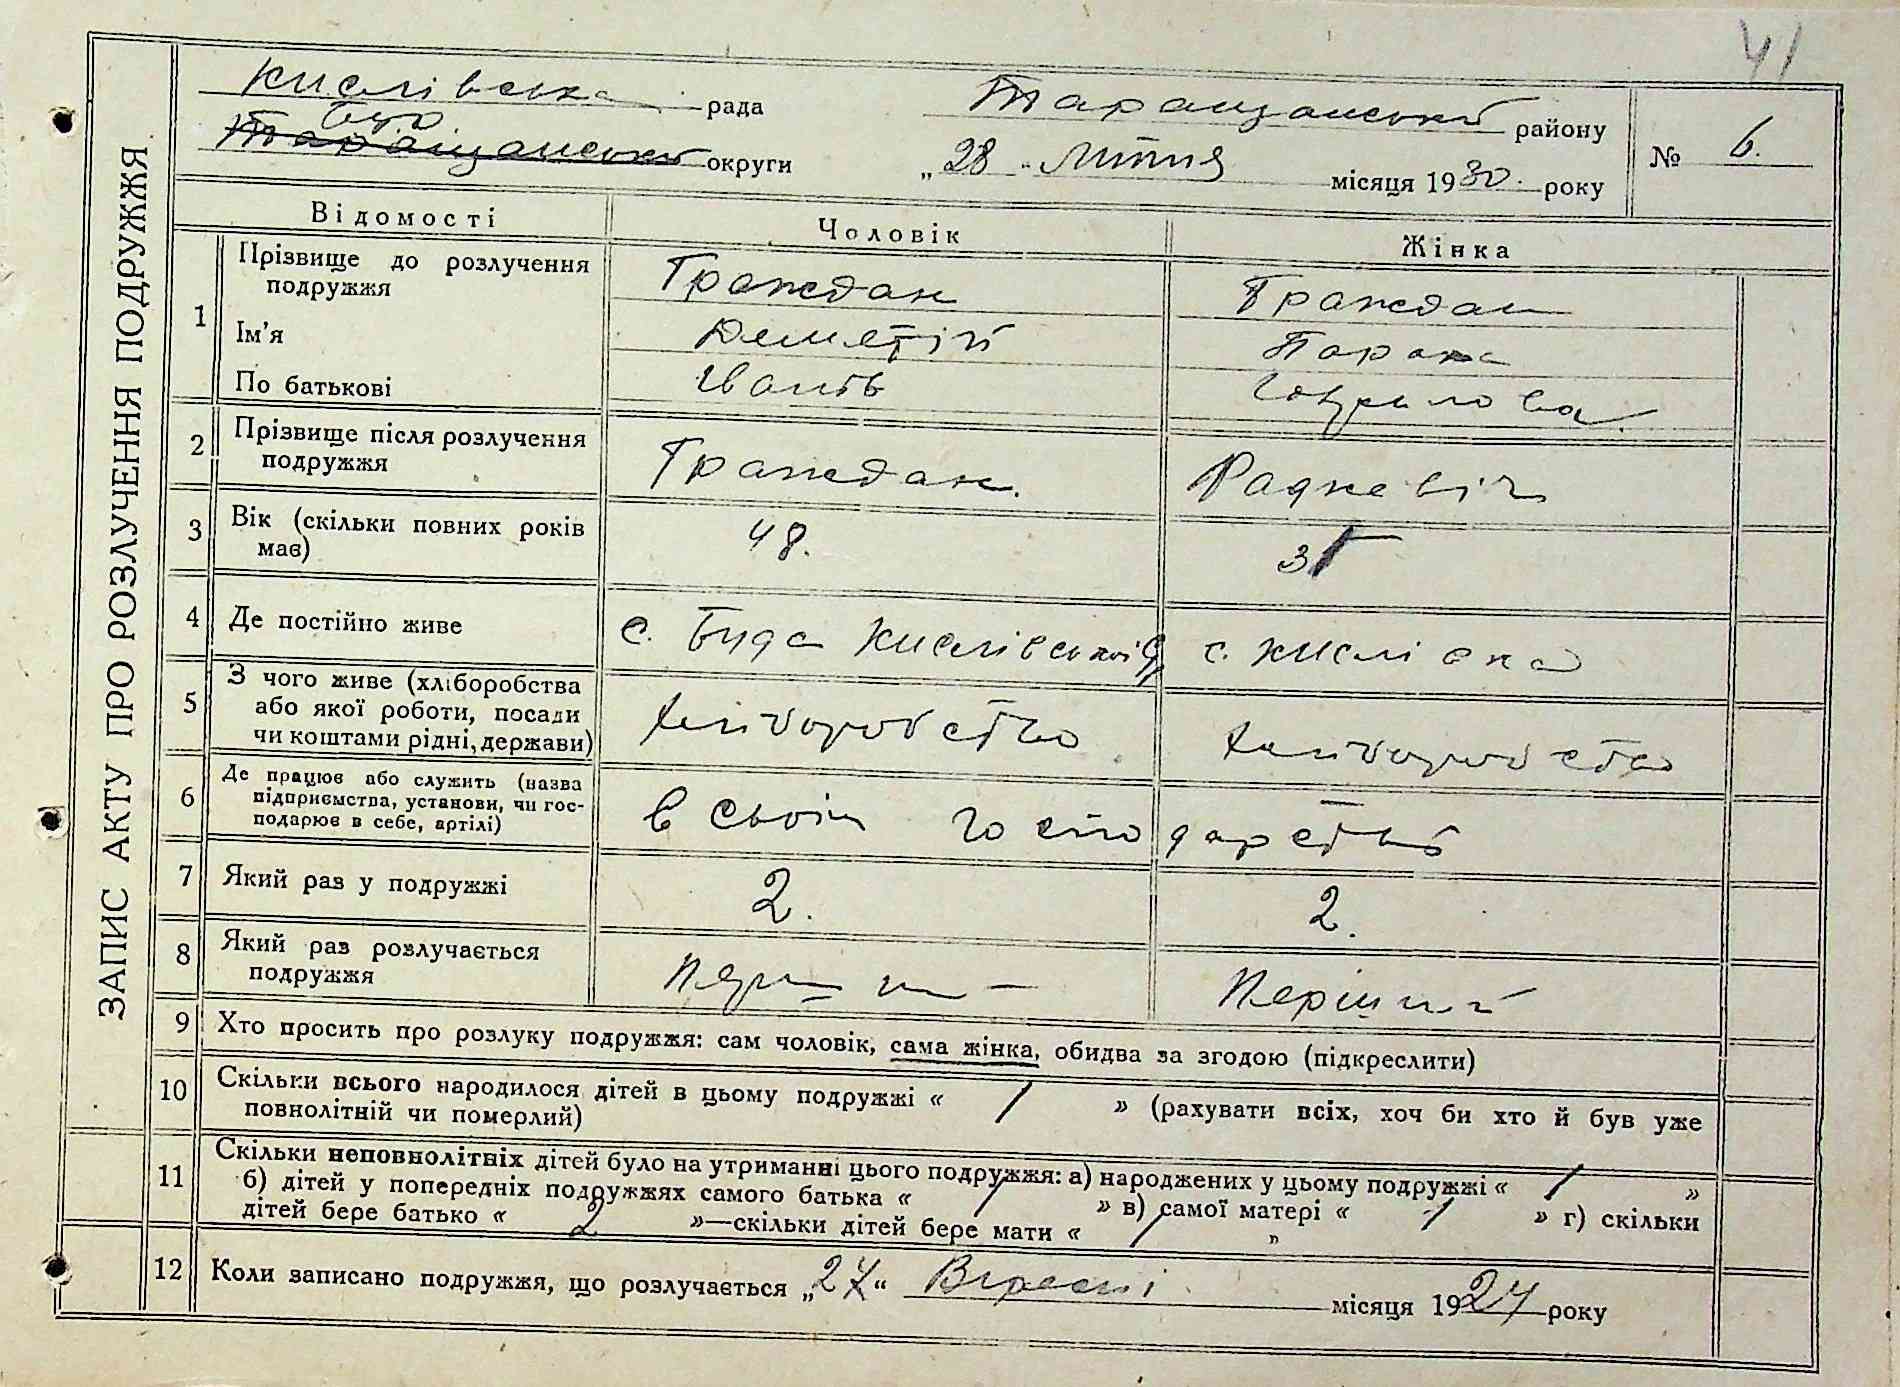 41
ЗАПИС АКТУ ПРО РОЗЛУЧЕННЯ ПОДРУЖЖЯ
Кислівська рада Таращанський району
№ 6.
Таращанської округи „28" Липня місяця 1930. року
Відомості Чоловік Жінка
1 Прізвище до розлучення подружжя Граждан Граждан
Ім'я Деметій Параска
По батькові Іванів Гаврилова
2 Прізвище після розлучення подружжя Граждан. Радкевіч
3 Вік (скільки повних років має) 48. 3
4 Де постійно живе с. Буда Кислівської с. Кислівка
5 З чого живе (хліборобства або якої роботи, посади чи коштами рідні, держави) хліборобство хліборобство
6 Де працює або служить (назва підприємства, установи, чи господарює в себе, артілі) в своїм господарстві
7 Який раз у подружжі 2. 2.
8 Який раз розлучається подружжя перший перший
9 Хто просить про розлуку подружжя: сам чоловік, сама жінка, обидва за згодою (підкреслити)
10 Скільки всього народилося дітей в цьому подружжі « 1 » (рахувати всіх, хоч би хто й був уже
повнолітній чи померлий)
11 Скільки неповнолітніх дітей було на утриманні цього подружжя: а) народжених у цьому подружжі « 1 »
б) дітей у попередніх подружжях самого батька « 1 » в) самої матері « 1 » г) скільки
дітей бере батько « 2 »—скільки дітей бере мати « 1 »
12 Коли записано подружжя, що розлучається „27“ Вересні місяця 1927 року